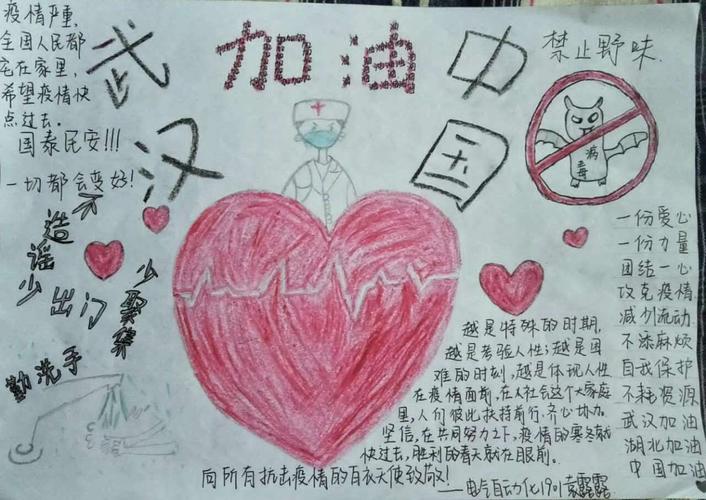 疫情严重,
全国人民都
宅在家里,
希望疫情快
点过去。
国泰民安!!!
一切都会变好!
武汉
加油
中国
禁止野味.
病毒
不造谣
少出门
少聚集
勤洗手
一份爱心
一份力量
团结一心
攻克疫情
减少流动
不添麻烦
自我保护
不耗资源
武汉加油
湖北加油
中国加油
越是特殊的时期,
越是考验人性;越是困
难的时刻,越是体现人性
在疫情面前,在人社会这个大家庭
里,人们彼此扶持前行.齐心协力.
坚信,在共同努力之下,疫情的寒冬就
快过去,胜利的春天就在眼前.
向所有抗击疫情的白衣天使致敬!
——电气自动化1901袁露露